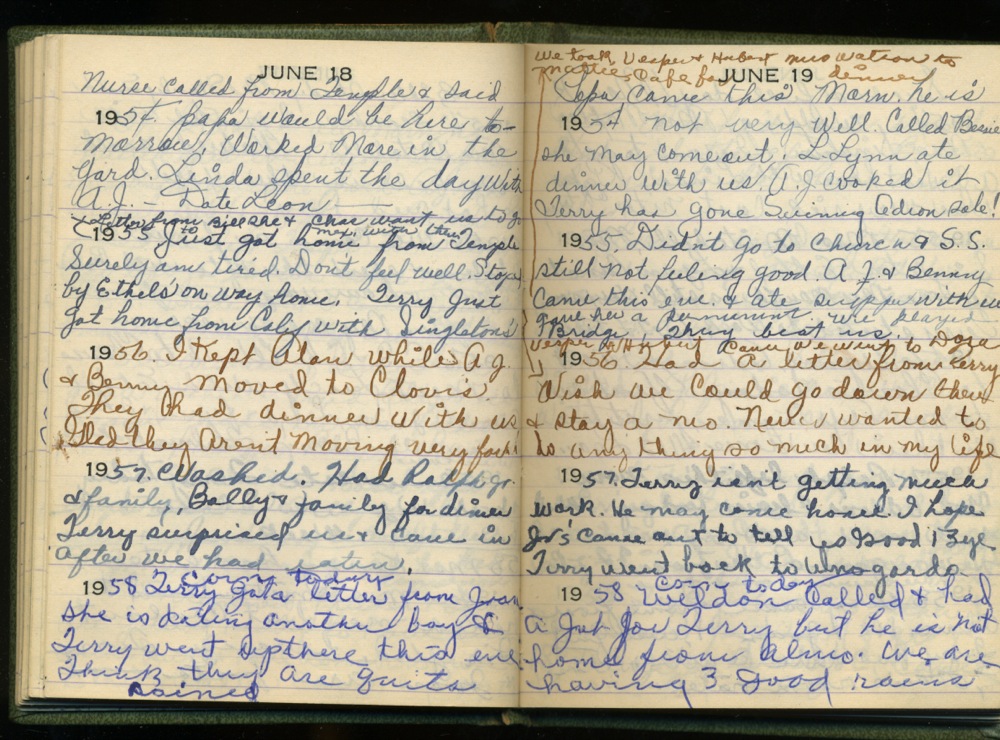 JUNE 18
Nurse called from Temple & said
1954. papa would be here to-
morrow. Worked More in the
Yard. Linda spent the day With
A.J. — Date Leon
& Letter from Bill She & Chas want us to go
to Mex. with them
1955 Just got home from Temple
Surely am tired. Don't feel well. Stoped
by Ethels' on way home. Terry Just
got home from Calif with Singletons'
1956. I Kept Alan while A J.
& Benny moved to Clovis.
They had dinner with us
Glad they Aren't Moving very far!
1957. Washed. Had Ralph Jr.
& family, Bally & family for dinner
Terry surprised us & Came in
after we had eaten.
Corry today
1958 Terry got a letter from Joan
she is dating another boy &
Terry went up there this eve
Think they are quits
Rained
JUNE 19
We took Vesper & Hubert Mrs Watson to
Cafe for dinner
Papa Came this Morn. he is
1954 not very Well. Called Bessie
she may come out. L. Lynn ate
dinner with us. A.J. cooked it
Terry has gone Swiming
1955. Didn't go to Church & S.S.
still not feeling good. A J. & Benny
Came this eve. & ate supper with us
gave her a permanent. We played
Bridge. They beat us.
Vesper & Hubert Came We went to Dora
1956. Had a letter from Terry
Wish we Could go down there
& stay a mo. Never wanted to
do any thing so much in my life
1957. Terry isn't getting much
work. He may come home. I hope
Jo's Came out to tell us Good Bye
Terry went back to
today
1958 Weldon Called & had
a Job for Terry but he is not
home from Almo. We are
having 3 good rains